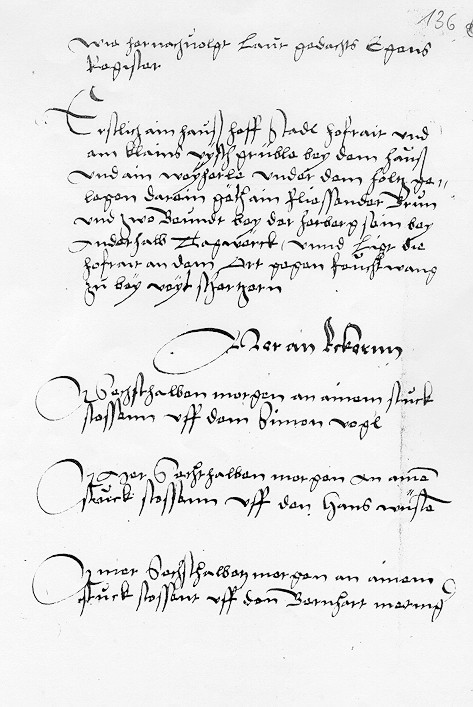 136
wie hernachuolgt Laut gedachts Egens
Register
Erstlich ain hauß hoff Stadl hofrait und
ain klains vysch grüble bey dem hauß
und ain weyherle under dem holtz ge-
legen darein geth ain fliessender Brun
und zwo Beundt bey der herberg sein bey
Anderhalb Tagwerck, unnd Ligt die
hofrait an dem Ort gegen feuchtwang
zu bey veyt
Mer an Eckernn
Sechsthalben morgen an ainem stuck
stossenn uff dem Simon vogl
Mer Sechsthalben morgen an aine
stuck stossenn uff den Hans wüste
mer Sechsthalben morgen an ainem
stuck stossent uff den Bernhart mering